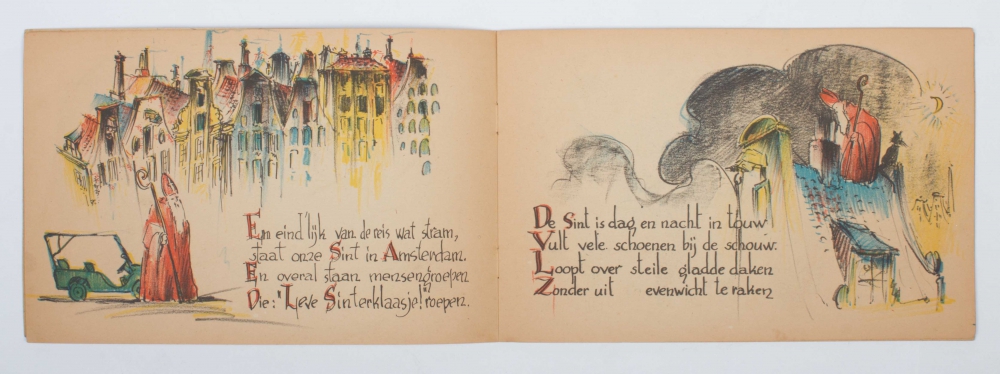 En eind'lijk van de reis wat stram,
staat onze Sint in Amsterdam.
En overal staan mensengroepen
Die: "Lieve Sinterklaasje!" roepen.
De Sint is dag en nacht in touw
Vult vele schoenen bij de schouw.
Loopt over steile gladde daken
Zonder uit evenwicht te raken